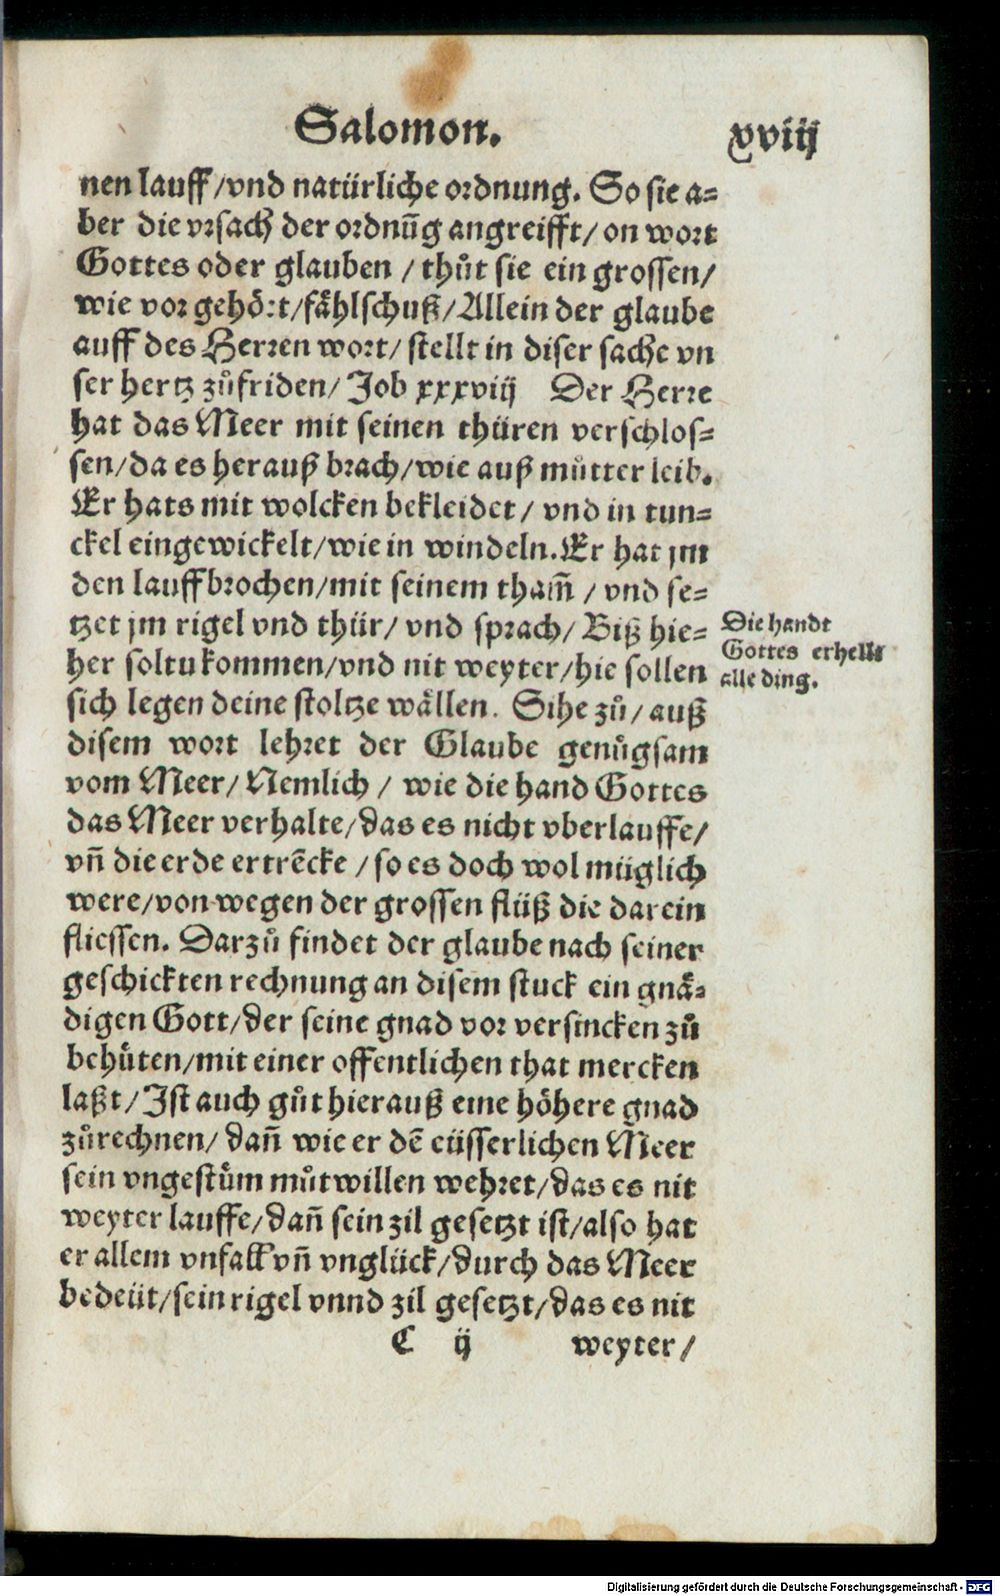 Salomon. xviij
nen lauff/vnd natürliche ordnung. So sie a=
ber die vrsach der ordnūg angreifft/ on wort
Gottes oder glauben / thůt sie ein grossen/
wie vor gehört/fåhlschuß/Allein der glaube
auff des Herren wort/ stellt in diser sache vn
ser hertz zůfriden/ Job xxxviij Der Herre
hat das Meer mit seinen thüren verschlos=
sen/da es herauß brach/wie auß můtter leib.
Er hats mit wolcken bekleidet/ vnd in tun=
ckel eingewickelt/wie in windeln.Er hat jm
den lauff brochen/mit seinem tham̄ / vnd se=
tzet jm rigel vnd thür/ vnd sprach/ Biß hie=
her soltu kommen/vnd nit weyter/hie sollen
sich legen deine stoltze wållen. Sihe zů/ auß
disem wort lehret der Glaube genůgsam
vom Meer/ Nemlich / wie die hand Gottes
das Meer verhalte/das es nicht vberlauffe/
vn̄ die erde ertrēcke /so es doch wol müglich
were/von wegen der grossen flüß die darein
fliessen. Darzů findet der glaube nach seiner
geschickten rechnung an disem stuck ein gnå=
digen Gott/der seine gnad vor versincken zů
behůten/mit einer offentlichen that mercken
laßt/ Ist auch gůt hierauß eine höhere gnad
zůrechnen/ dan̄ wie er dē eüsserlichen Meer
sein vngestům můtwillen wehret/das es nit
weyter lauffe/dan̄ sein zil gesetzt ist/also hat
er allem vnfall vn̄ vnglück/durch das Meer
bedeüt/sein rigel vnnd zil gesetzt/das es nit
C ij weyter/
Die handt
Gottes erhelt
alle ding.
Digitalisierung gefördert durch die Deutsche Forschungsgemeinschaft - DFG